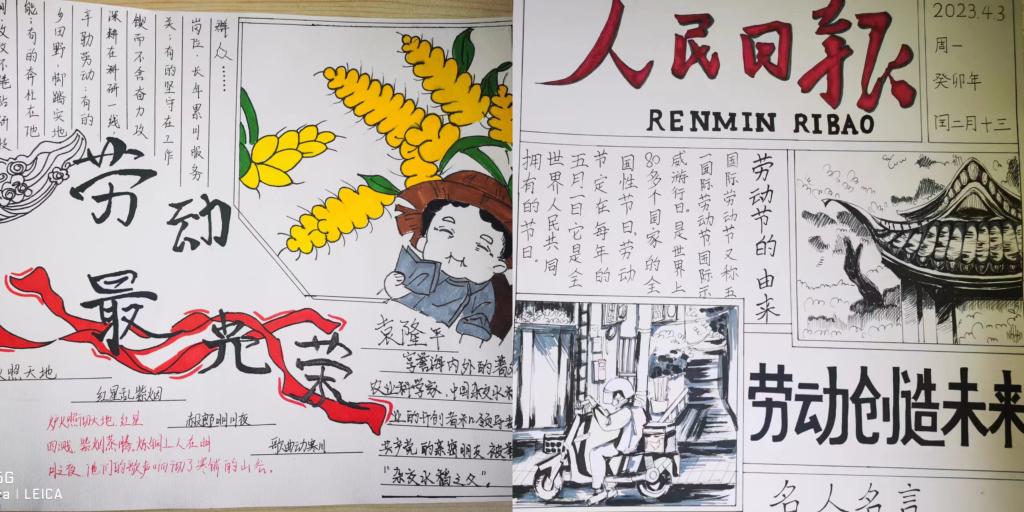 群众……
岗位，长年累月服务
关；有的坚守在工作
锲而不舍奋力攻
深耕在科研一线，
辛勤劳动；有的
乡田野，脚踏实地
能；有的奔赴在
劳动
最光荣
火照天地
红星乱紫烟
赧郎明月夜
歌曲动寒川
炉火照彻天地，红星
四溅，紫烟蒸腾，炼铜工人在明
月之夜，他们的歌声响彻了寒峭的山谷。
袁隆平
享誉海内外的著
农业科学家，中国杂交水
业的开创者和领导者
共产党的亲密朋友被
"杂交水稻之父"。
LEICA
人民日报
RENMIN RIBAO
2023.4.3
周一
癸卯年
闰二月十三
劳动节的由来
国际劳动节又称五
一国际劳动节国际示
威游行日。是世界上
80多个国家的全
国性节日。劳动
节定在每年的
五月一日它是全
世界人民共同
拥有的节日。
劳动创造未来
名人名言